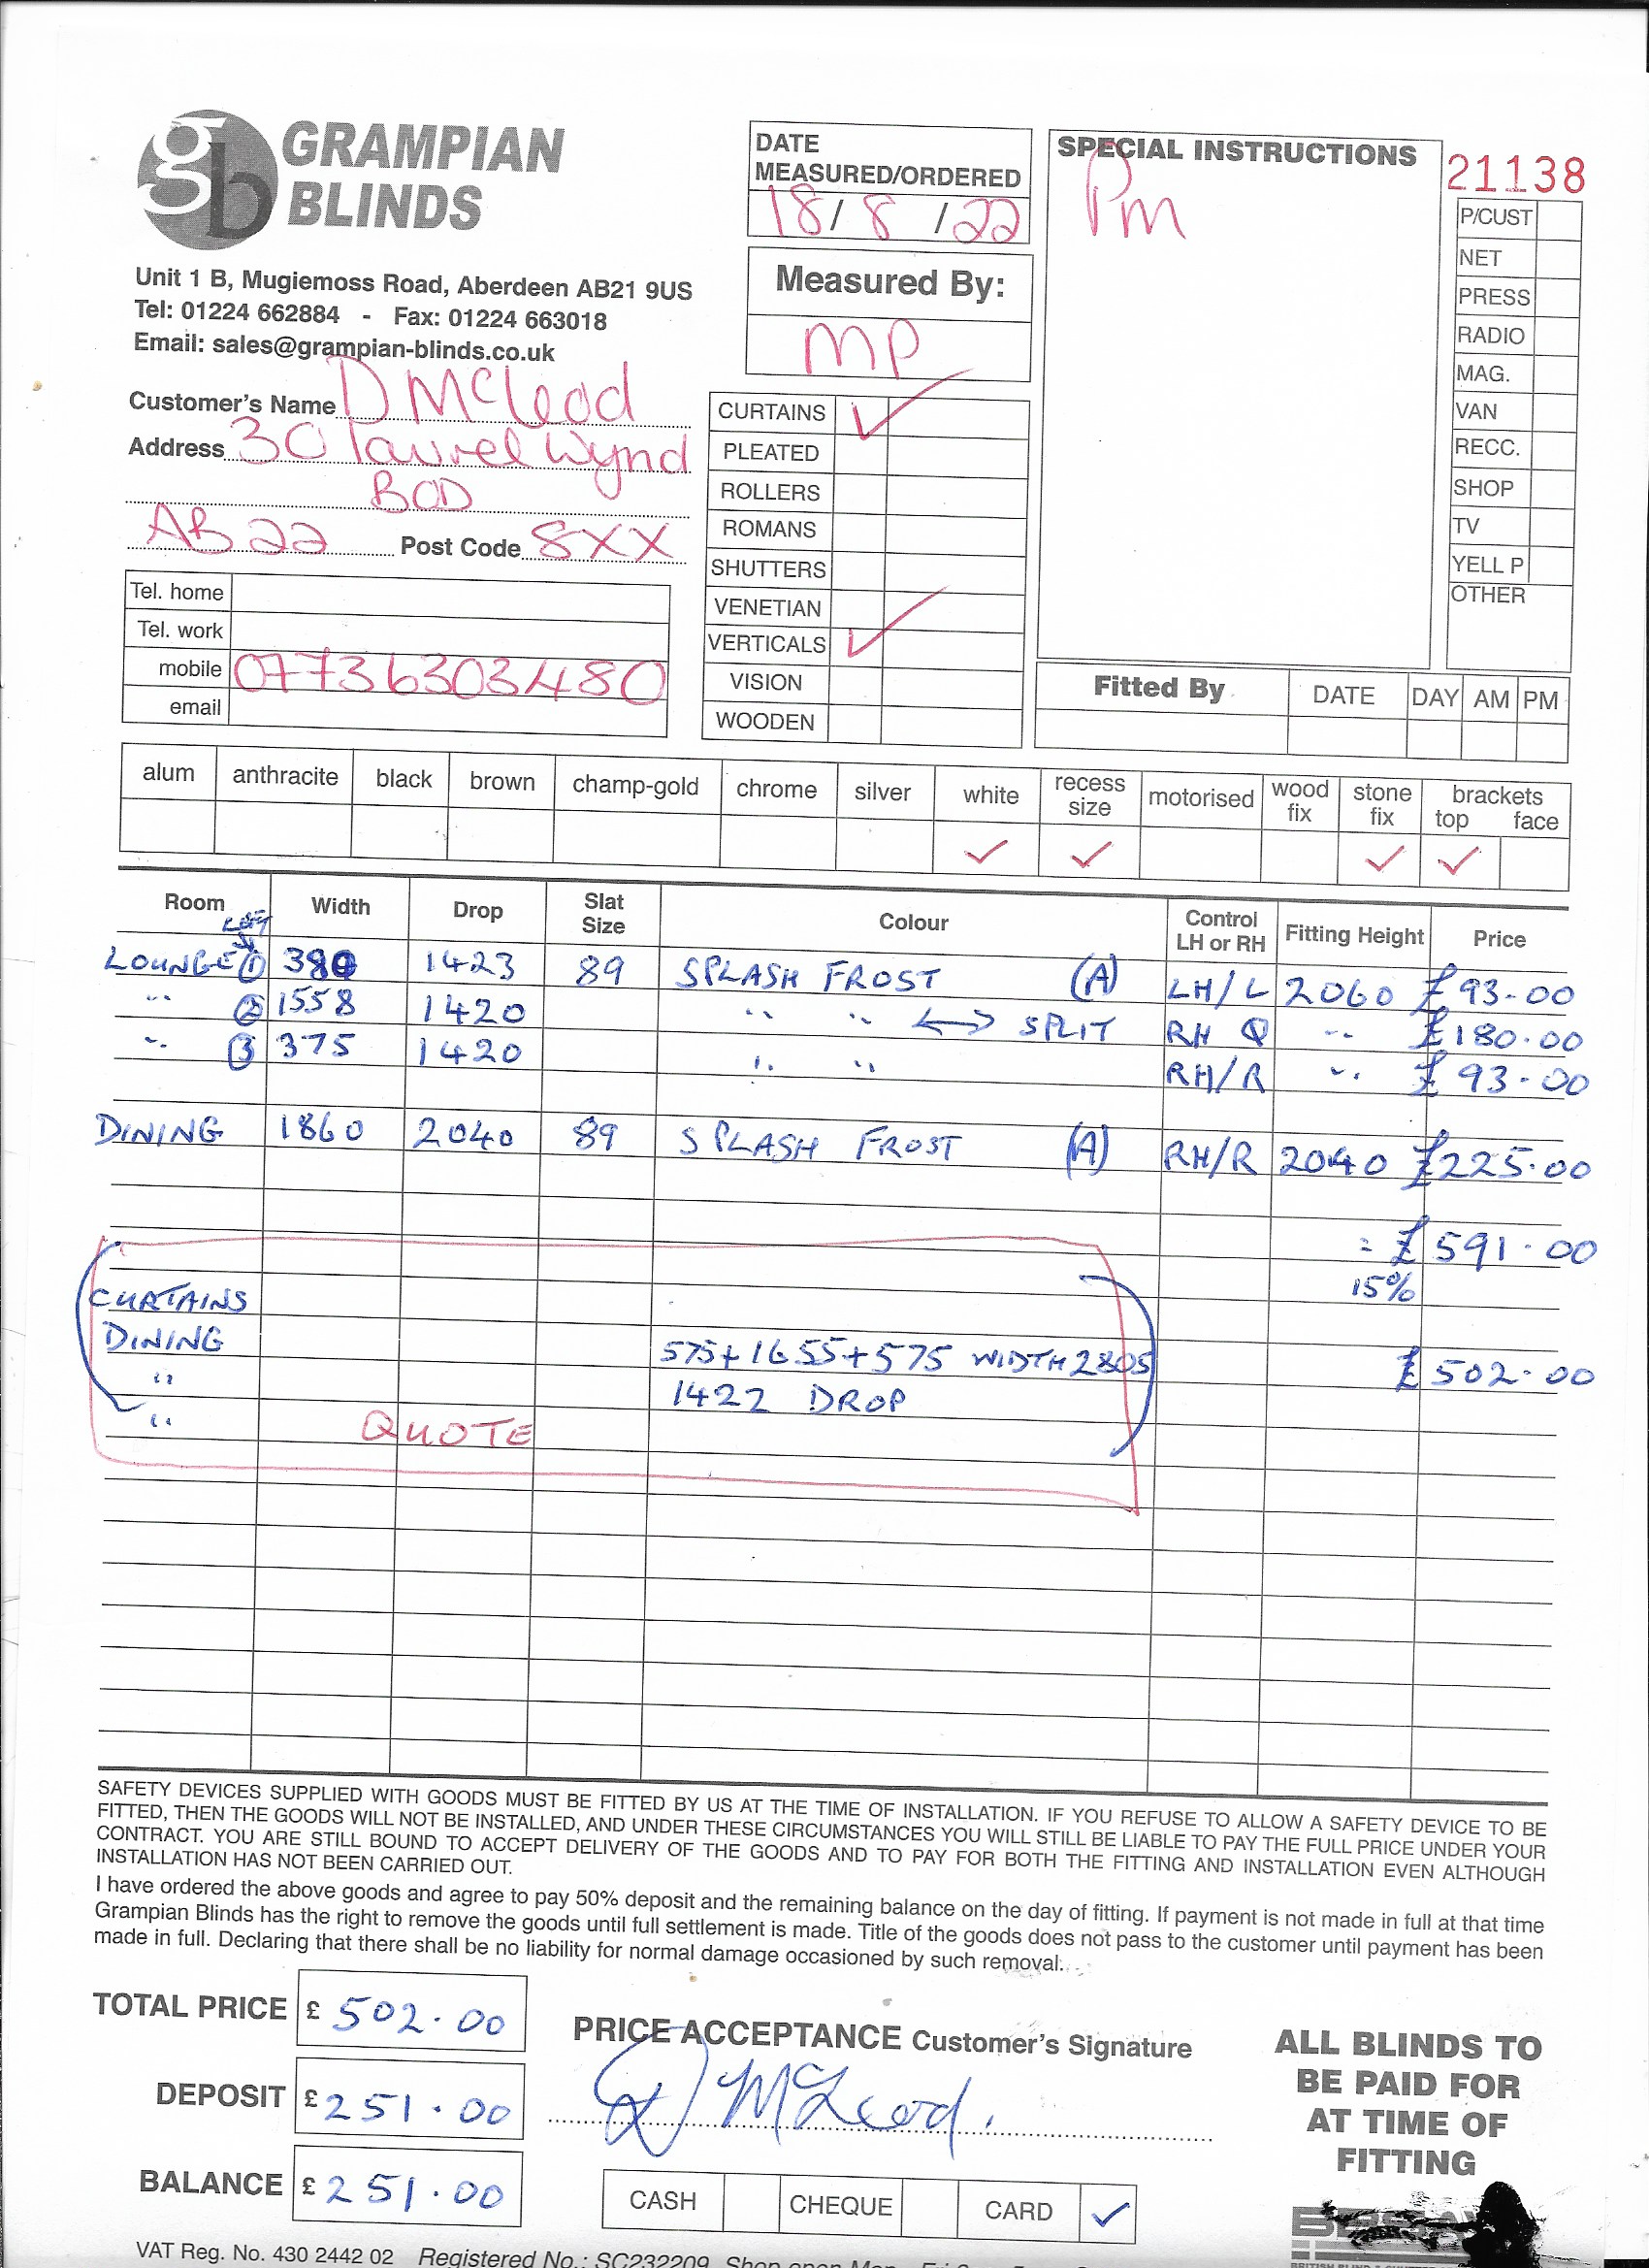 gb GRAMPIAN BLINDS
Unit 1 B, Mugiemoss Road, Aberdeen AB21 9US
Tel: 01224 662884 - Fax: 01224 663018
Email: sales@grampian-blinds.co.uk
Customer's Name D McLeod
Address 30 Laurel Wynd
BOD
AB22 Post Code 8XX
Tel. home
Tel. work
mobile 07736303480
email
DATE
MEASURED/ORDERED
18/8/22
Measured By:
MP
CURTAINS ✓
PLEATED
ROLLERS
ROMANS
SHUTTERS
VENETIAN
VERTICALS ✓
VISION
WOODEN
SPECIAL INSTRUCTIONS
Pm
21138
P/CUST
NET
PRESS
RADIO
MAG.
VAN
RECC.
SHOP
TV
YELL P
OTHER
Fitted By DATE DAY AM PM
alum anthracite black brown champ-gold chrome silver white recess size motorised wood fix stone fix brackets top face
✓ ✓ ✓ ✓
Room Width Drop Slat Size Colour Control LH or RH Fitting Height Price
LEFT
LOUNGE ① 380 1423 89 SPLASH FROST (A) LH/L 2060 £93.00
" ② 1558 1420 " " ↔ SPLIT RH " £180.00
" ③ 375 1420 " " RH/R " £93.00
DINING 1860 2040 89 SPLASH FROST (A) RH/R 2040 £225.00
= £591.00
15%
CURTAINS
DINING 575+1655+575 WIDTH 2805 £502.00
" 1422 DROP
" QUOTE
SAFETY DEVICES SUPPLIED WITH GOODS MUST BE FITTED BY US AT THE TIME OF INSTALLATION. IF YOU REFUSE TO ALLOW A SAFETY DEVICE TO BE
FITTED, THEN THE GOODS WILL NOT BE INSTALLED, AND UNDER THESE CIRCUMSTANCES YOU WILL STILL BE LIABLE TO PAY THE FULL PRICE UNDER YOUR
CONTRACT. YOU ARE STILL BOUND TO ACCEPT DELIVERY OF THE GOODS AND TO PAY FOR BOTH THE FITTING AND INSTALLATION EVEN ALTHOUGH
INSTALLATION HAS NOT BEEN CARRIED OUT.
I have ordered the above goods and agree to pay 50% deposit and the remaining balance on the day of fitting. If payment is not made in full at that time
Grampian Blinds has the right to remove the goods until full settlement is made. Title of the goods does not pass to the customer until payment has been
made in full. Declaring that there shall be no liability for normal damage occasioned by such removal.
TOTAL PRICE £ 502.00
DEPOSIT £ 251.00
BALANCE £ 251.00
PRICE ACCEPTANCE Customer's Signature
D McLeod.
CASH CHEQUE CARD ✓
ALL BLINDS TO
BE PAID FOR
AT TIME OF
FITTING
VAT Reg. No. 430 2442 02 Registered No.: SC232209